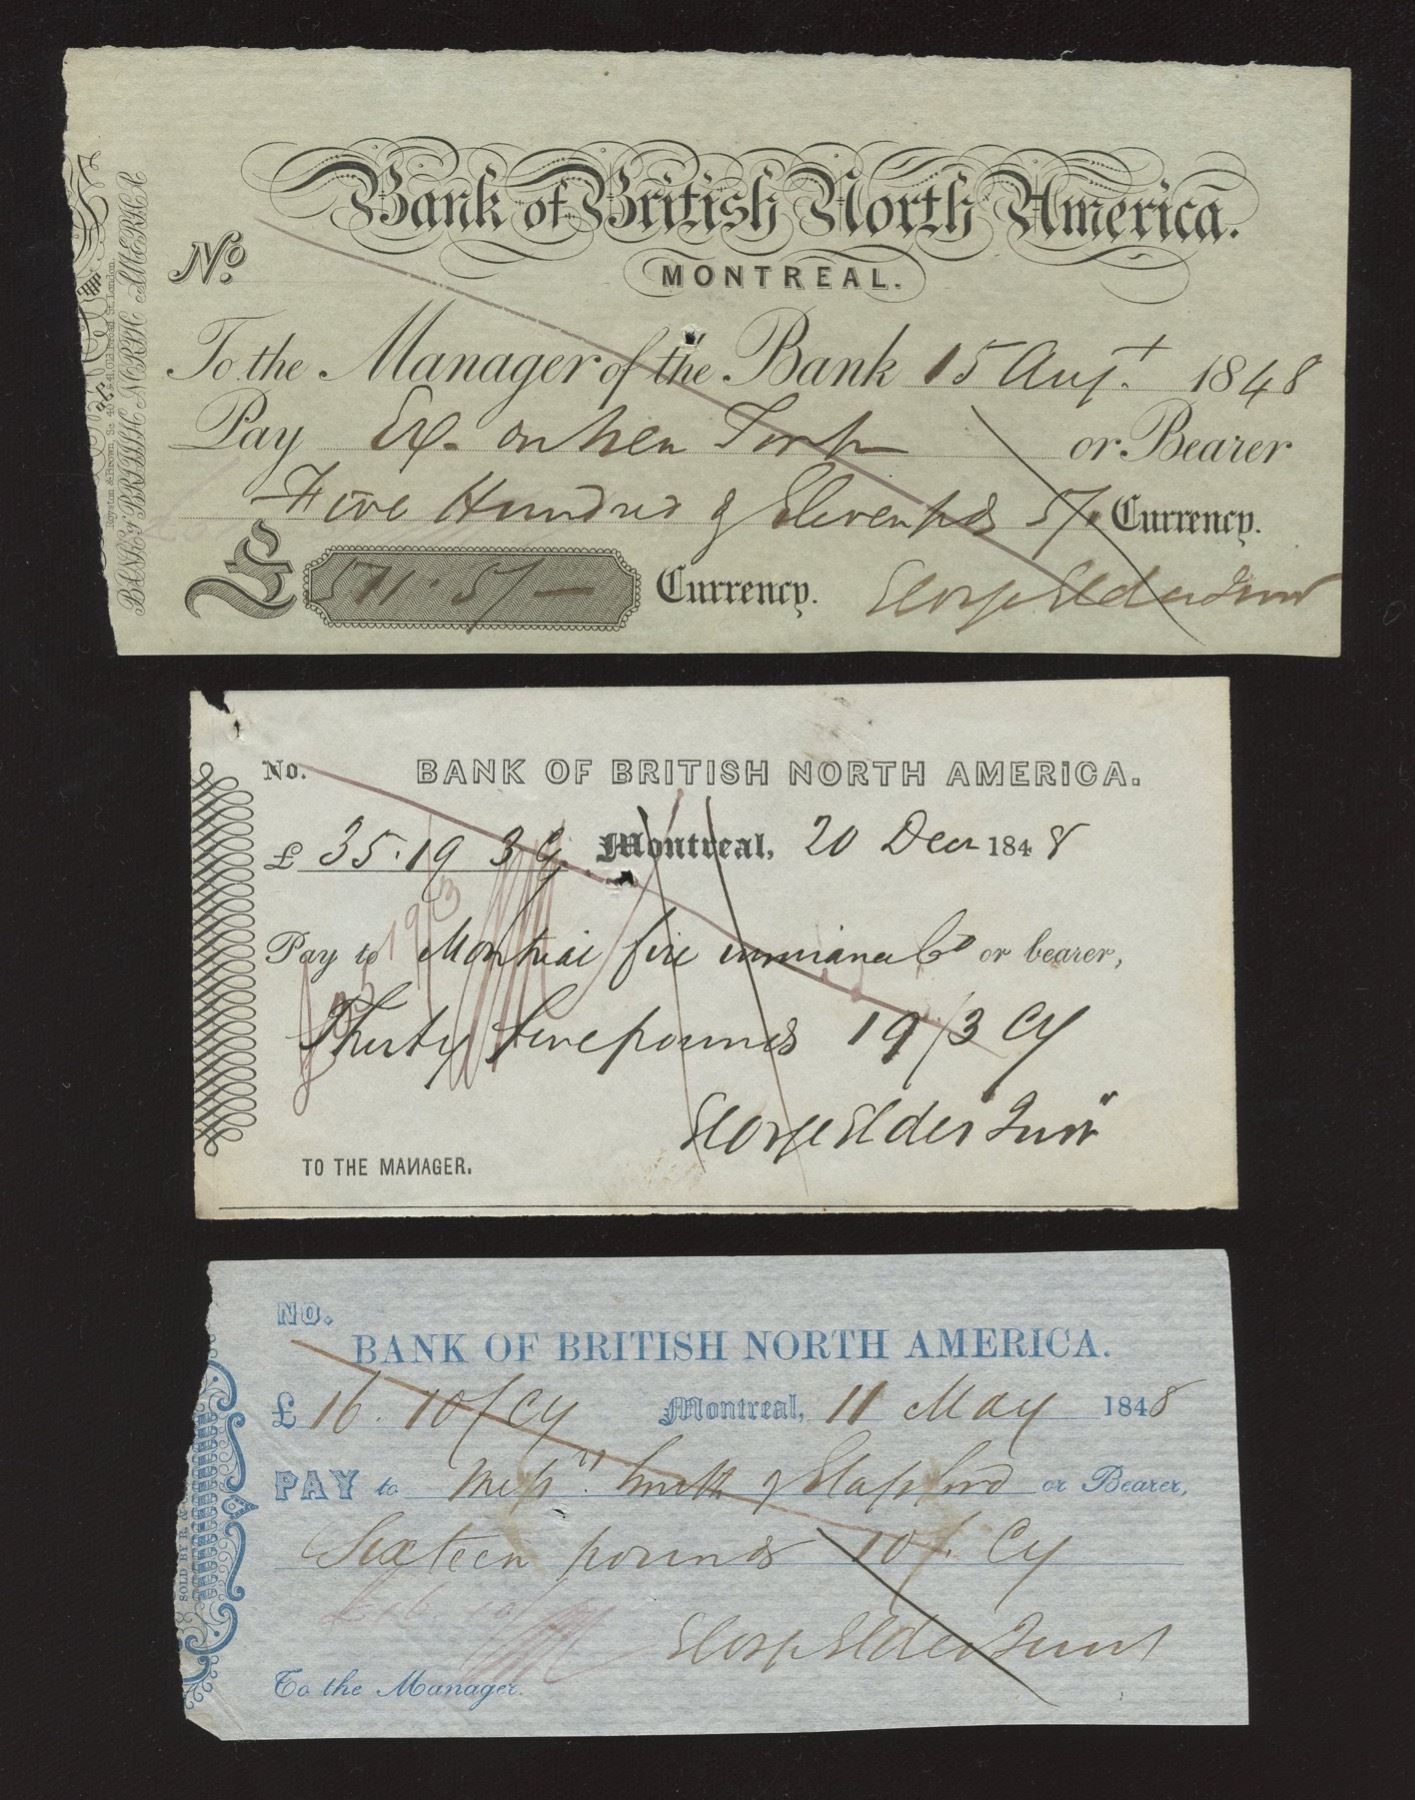 Bank of British North America.
MONTREAL.
No.
To the Manager of the Bank 15 Augt. 1848
Pay Ex. on New York or Bearer
Five Hundred & Eleven pds 5/. Currency.
£ 511.5/— Currency. George Elder Junr
BANK of BRITISH NORTH AMERICA
No. BANK OF BRITISH NORTH AMERICA.
£ 35.19 3 Cy. Montreal, 20 Decr 1848
Pay to Montreal fire insurance Co or bearer,
Thirty five pounds 19/3 Cy
George Elder Junr
TO THE MANAGER.
NO.
BANK OF BRITISH NORTH AMERICA.
£ 16.10/ Cy Montreal, 11 May 1848
PAY to Messrs. Smith & or Bearer,
Sixteen pounds 10/. Cy
George Elder Junr
To the Manager.
SOLD BY R &